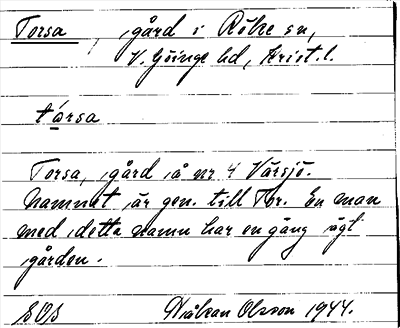 Torsa, gård i Röke sn,
V. Göinge hd, Krist. l.
tórsa
Torsa, gård å nr 4 Värsjö.
Namnet är gen. till Tor. En man
med detta namn har en gång ägt
gården.
Håkan Olsson 1944.